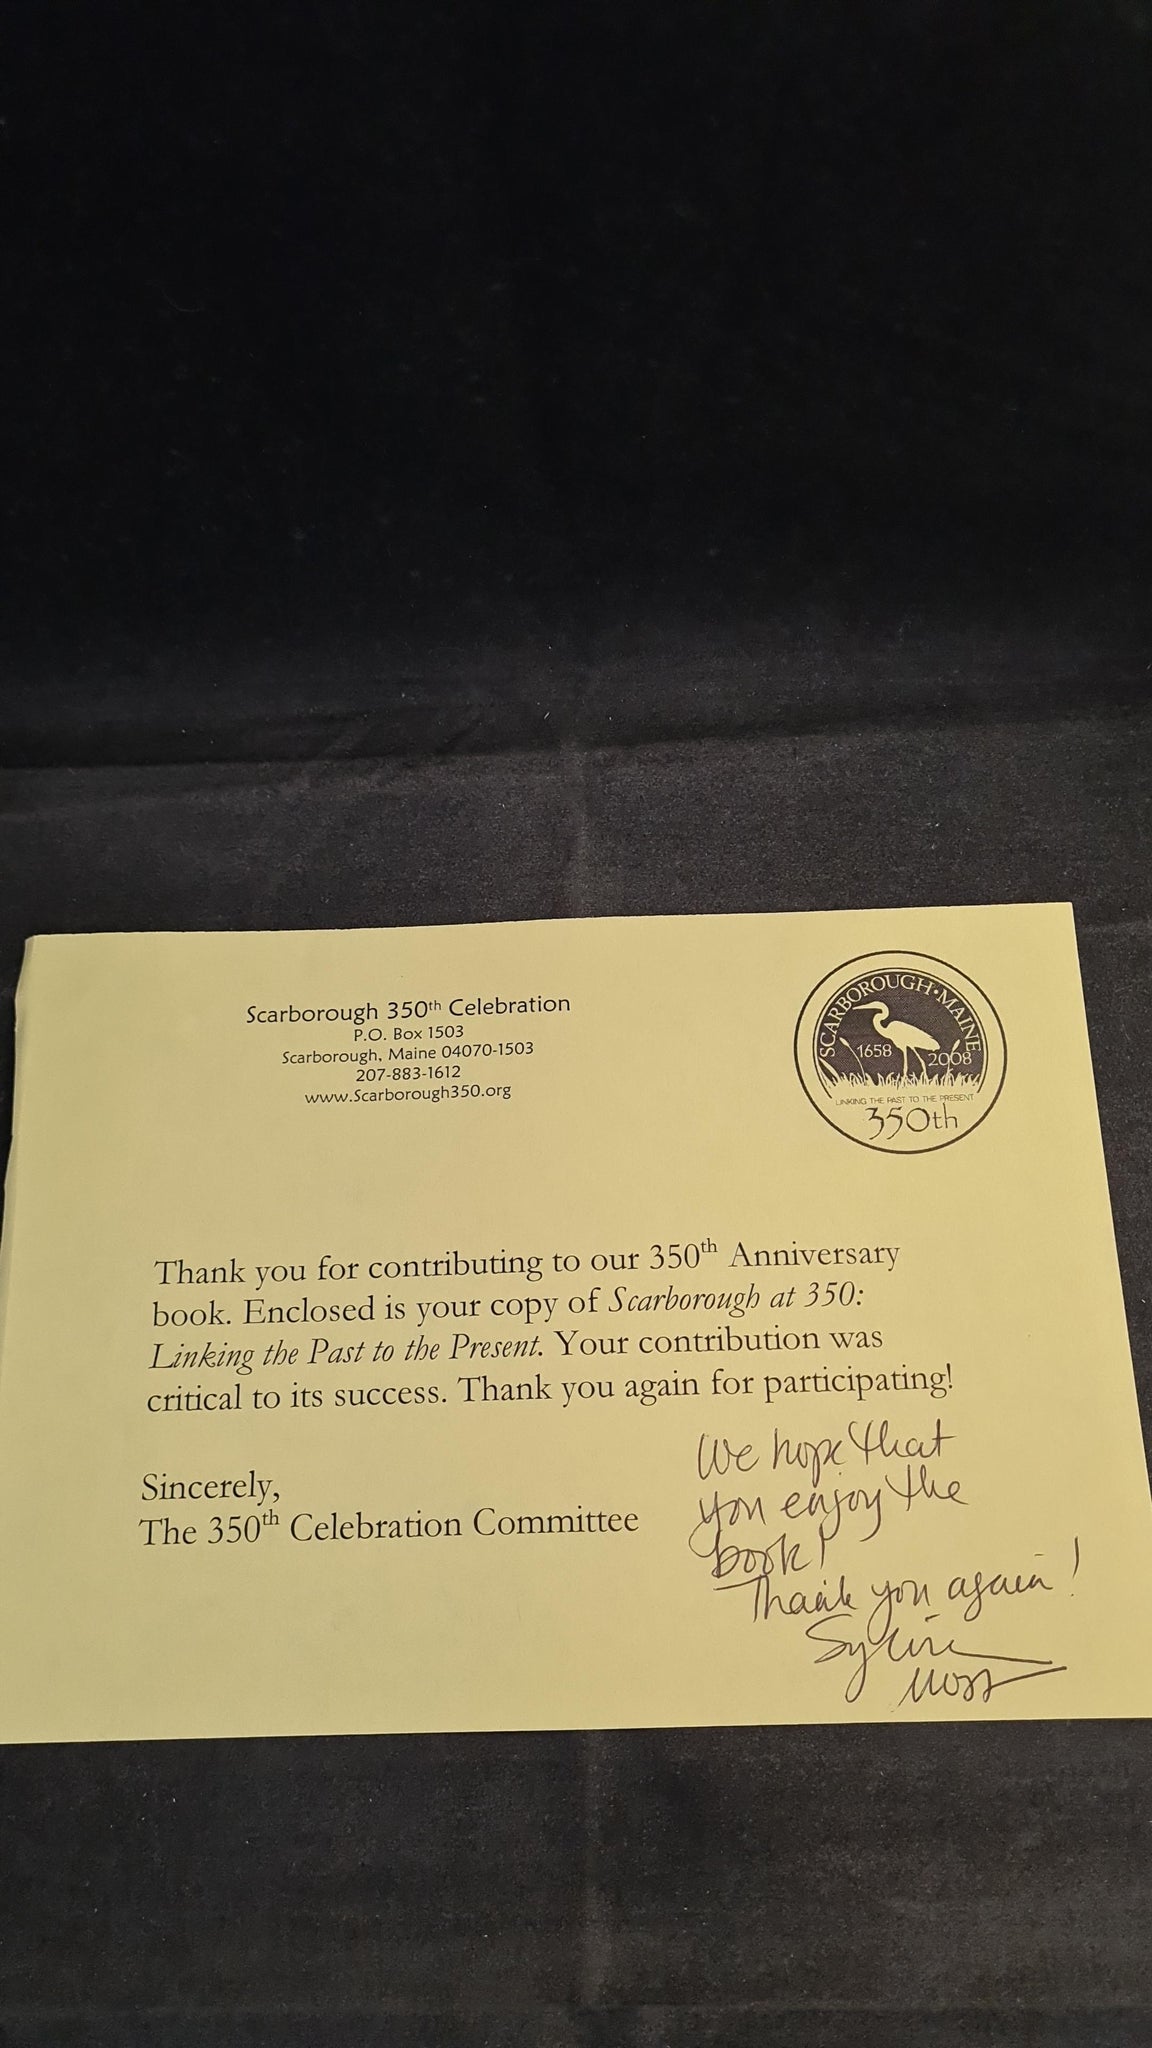 Scarborough 350th Celebration
P.O. Box 1503
Scarborough, Maine 04070-1503
207-883-1612
www.Scarborough350.org
SCARBOROUGH • MAINE
1658 2008
LINKING THE PAST TO THE PRESENT
350th
Thank you for contributing to our 350th Anniversary
book. Enclosed is your copy of Scarborough at 350:
Linking the Past to the Present. Your contribution was
critical to its success. Thank you again for participating!
Sincerely,
The 350th Celebration Committee
We hope that
you enjoy the
book!
Thank you again!
Moss